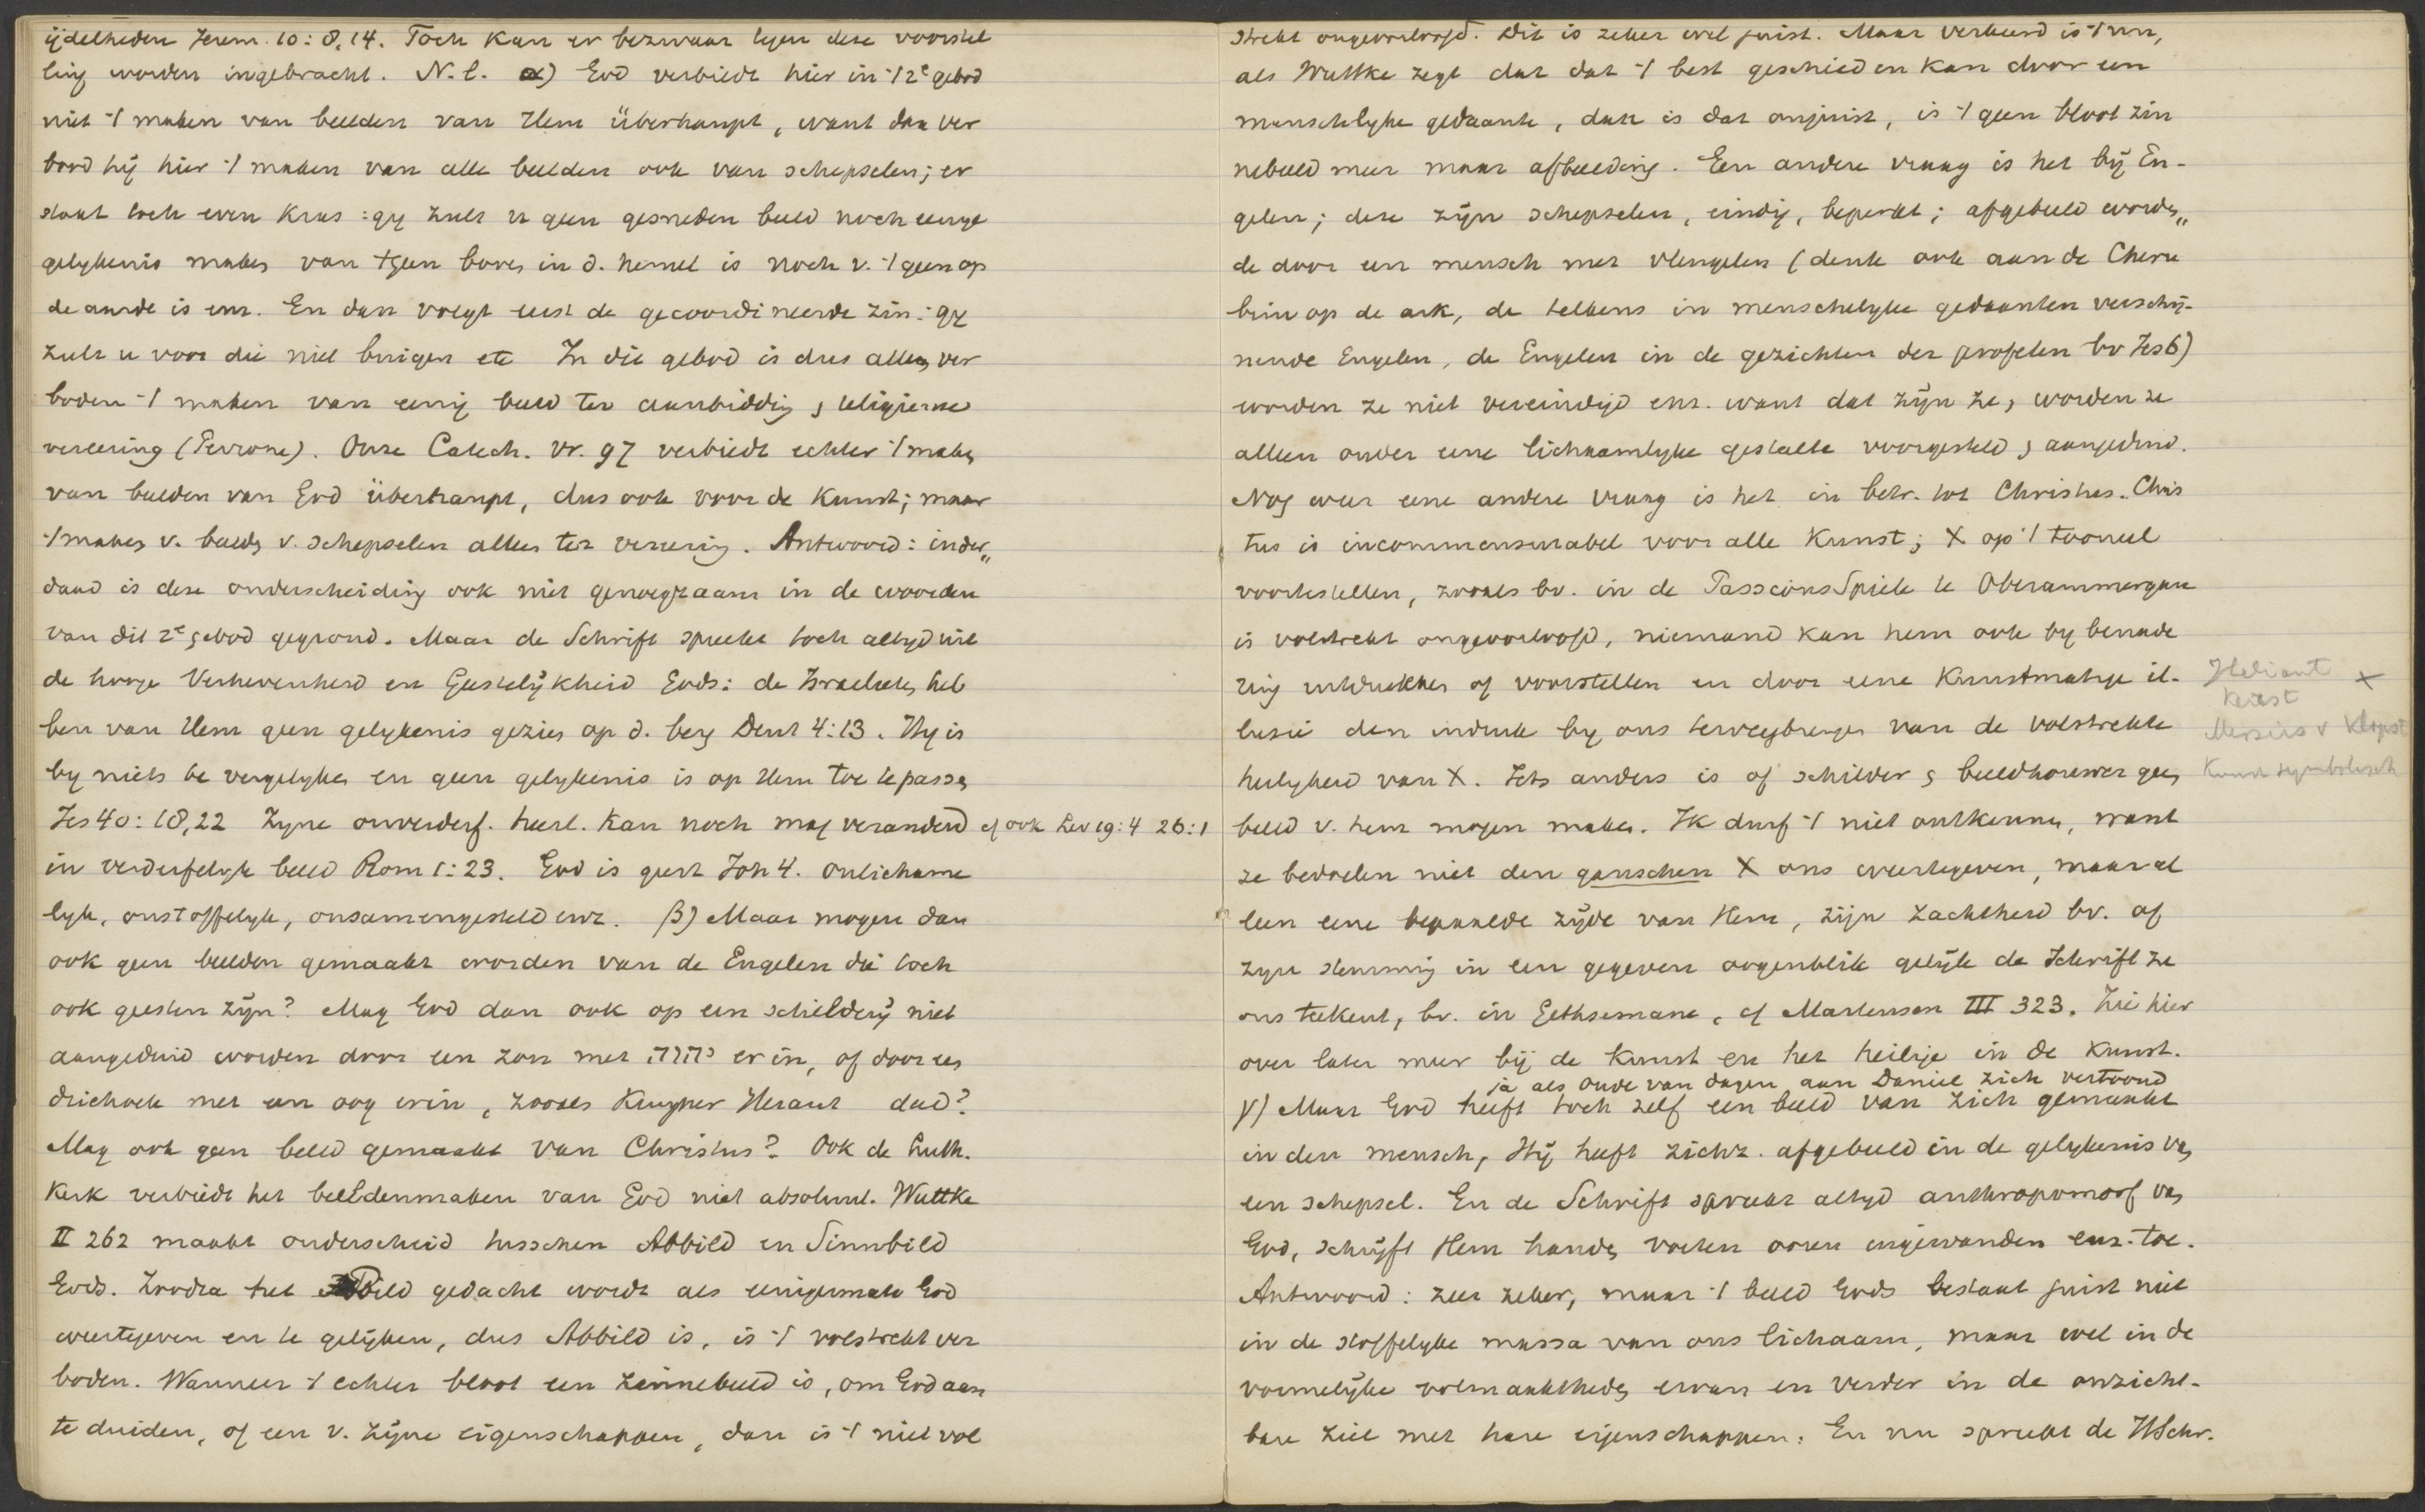 ijdelheden Jerem. 10:8,14. Toch kan er bezwaar tegen deze voorstel
ling worden ingebracht. N.l. α) God verbiedt hier in 't 2e gebod
niet 't maken van beelden van Hem überhaupt, want dan ver
bood hij hier 't maken van alle beelden ook van schepselen; er
staat toch even kras: gy zult u geen gesneden beeld noch eenige
gelykenis maken van tgeen boven in d. hemel is noch v. 't geen op
de aarde is enz. En dan volgt eerst de gecoordineerde zin: gy
zult u voor die niet buigen etc In dit gebod is dus alleen ver
boden 't maken van eenig beeld ter aanbidding, religieuse
vereering (Perrone). Onze Catech. vr. 97 verbiedt echter 't maken
van beelden van God überhaupt, dus ook voor de Kunst; maar
't maken v. beelden v. schepselen alleen ter vereering. Antwoord: inder„
daad is deze onderscheiding ook niet genoegzaam in de woorden
van dit 2e gebod gegrond. Maar de Schrift spreekt toch altyd uit
de hooge Verhevenheid en Geestelijkheid Gods: de Israelieten heb
ben van Hem geen gelykenis gezien op d. berg Deut 4:13. Hy is
by niets te vergelyken en geen gelykenis is op Hem toe te passen
Jes 40:18,22 Zyne onverderf. heerl. kan noch mag veranderd cf ook Lev 19:4 26:1
in verderfelyk beeld Rom 1:23. God is geest Joh 4. onlichame
lyk, onstoffelyk, onsamengesteld enz. β) Maar mogen dan
ook geen beelden gemaakt worden van de Engelen die toch
ook geesten zijn? Mag God dan ook op een schilderij niet
aangeduid worden door een zon met יהוה er in, of door een
driehoek met een oog erin, zooals Kuyper Heraut deed?
Mag ook geen beeld gemaakt van Christus? Ook de Luth.
Kerk verbiedt het beeldenmaken van God niet absoluut. Wuttke
II 262 maakt onderscheid tusschen Abbild en Sinnbild
Gods. Zoodra het Bild gedacht wordt als eenigermate God
weertegeven en te gelijken, dus Abbild is, is 't volstrekt ver
boden. Wanneer 't echter bloot een zinnebeeld is, om God aan
te duiden, of een v. zijne eigenschappen, dan is 't niet vol
strekt ongeoorloofd. Dit is zeker wel juist. Maar verkeerd is 't nu,
als Wuttke zegt dat dat 't best geschieden kan door een
menschelyke gedaante, dat is dat onjuist, is 't geen bloot zin
nebeeld meer maar afbeelding. Een andere vraag is het bij En-
gelen; deze zijn schepselen, eindig, beperkt; afgebeeld worden„
de door een mensch met vleugelen (denk ook aan de Cheru
bim op de ark, de telkens in menschelyke gedaanten verschij-
nende Engelen, de Engelen in de gezichten der profeten bv Jes 6)
worden ze niet vereindigd enz. want dat zijn ze, worden ze
alleen onder eene lichaamlyke gestalte voorgesteld, aangeduid.
Nog weer eene andere vraag is het in betr. tot Christus. Chris
tus is incommensurabel voor alle Kunst; X op 't tooneel
voortestellen, zooals bv. in de PassionsSpiele te Oberammergau
is volstrekt ongeoorloofd, niemand kan hem ook by benade
ring uitdrukken of voorstellen en door eene Kunstmatige il-
lusie den indruk by ons teweegbrengen van de volstrekte
heiligheid van X. Iets anders is of schilder, beeldhouwer geen
beeld v. hem mogen maken. Ik durf 't niet ontkennen, want
ze bedoelen niet den ganschen X ons weertegeven, maar al
leen eene bepaalde zijde van Hem, zijn zachtheid bv. of
zijn stemming in een gegeven oogenblik gelijk de Schrift ze
ons teekent, bv. in Gethsemane, cf Martensen III 323. Zie hier
over later meer bij de kunst en het heilige in de kunst.
ja als oude van dagen aan Daniel zich vertoond
γ) Maar God heeft toch zelf een beeld van zich gemaakt
in den mensch, Hij heeft zichz. afgebeeld in de gelykenis van
een schepsel. En de Schrift spreekt altyd anthropomorf van
God, schrijft Hem handen voeten ooren ingewanden enz. toe.
Antwoord: zeer zeker, maar 't beeld Gods bestaat juist niet
in de stoffelyke massa van ons lichaam, maar wel in de
vormelijke volmaaktheden ervan en verder in de onzicht-
bare ziel met hare eigenschappen. En nu spreekt de HSchr.
Heliant X
Kerst
Messias v Klopst
Kunst symbolisch